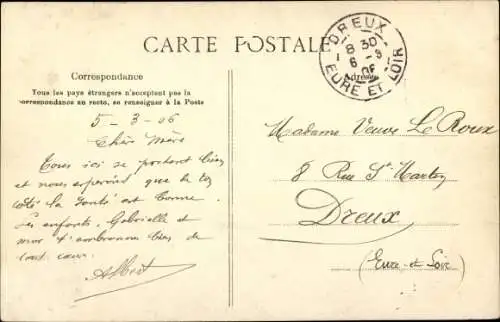 CARTE POSTALE
DREUX
8 30
6 - 3
06
EURE ET LOIR
Correspondance
Tous les pays étrangers n'acceptent pas la
correspondance au recto, se renseigner à la Poste
Adresse
5 - 3 - 06
Chère Mère
Tous ici se portent bien
et nous espérons que de ton
côté la santé est bonne.
Les enfants, Gabrielle et
moi t'embrassons bien de
tout cœur.
Albert
Madame Veuve Le Roux
8 Rue St Martin
Dreux
(Eure-et-Loir)